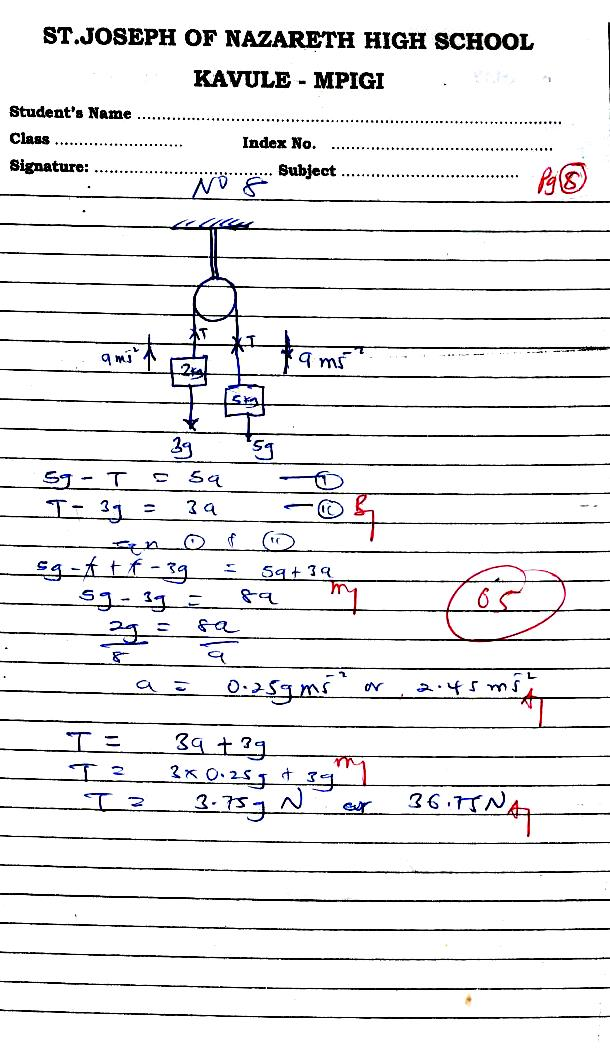 ST.JOSEPH OF NAZARETH HIGH SCHOOL
KAVULE - MPIGI
Student's Name ..........
Class .......... Index No. ..........
Signature: .......... Subject ..........
Pg 8
No 8
T T
a ms⁻² a ms⁻²
2kg
5kg
3g 5g
5g - T = 5a — (i)
T - 3g = 3a — (ii) B1
eqn (i) & (ii)
5g - T + T - 3g = 5a + 3a
5g - 3g = 8a M1
05
2g = 8a
8 a
a = 0.25g ms⁻² or 2.45 ms⁻² A1
T = 3a + 3g
T = 3 x 0.25g + 3g M1
T = 3.75g N or 36.75N A1